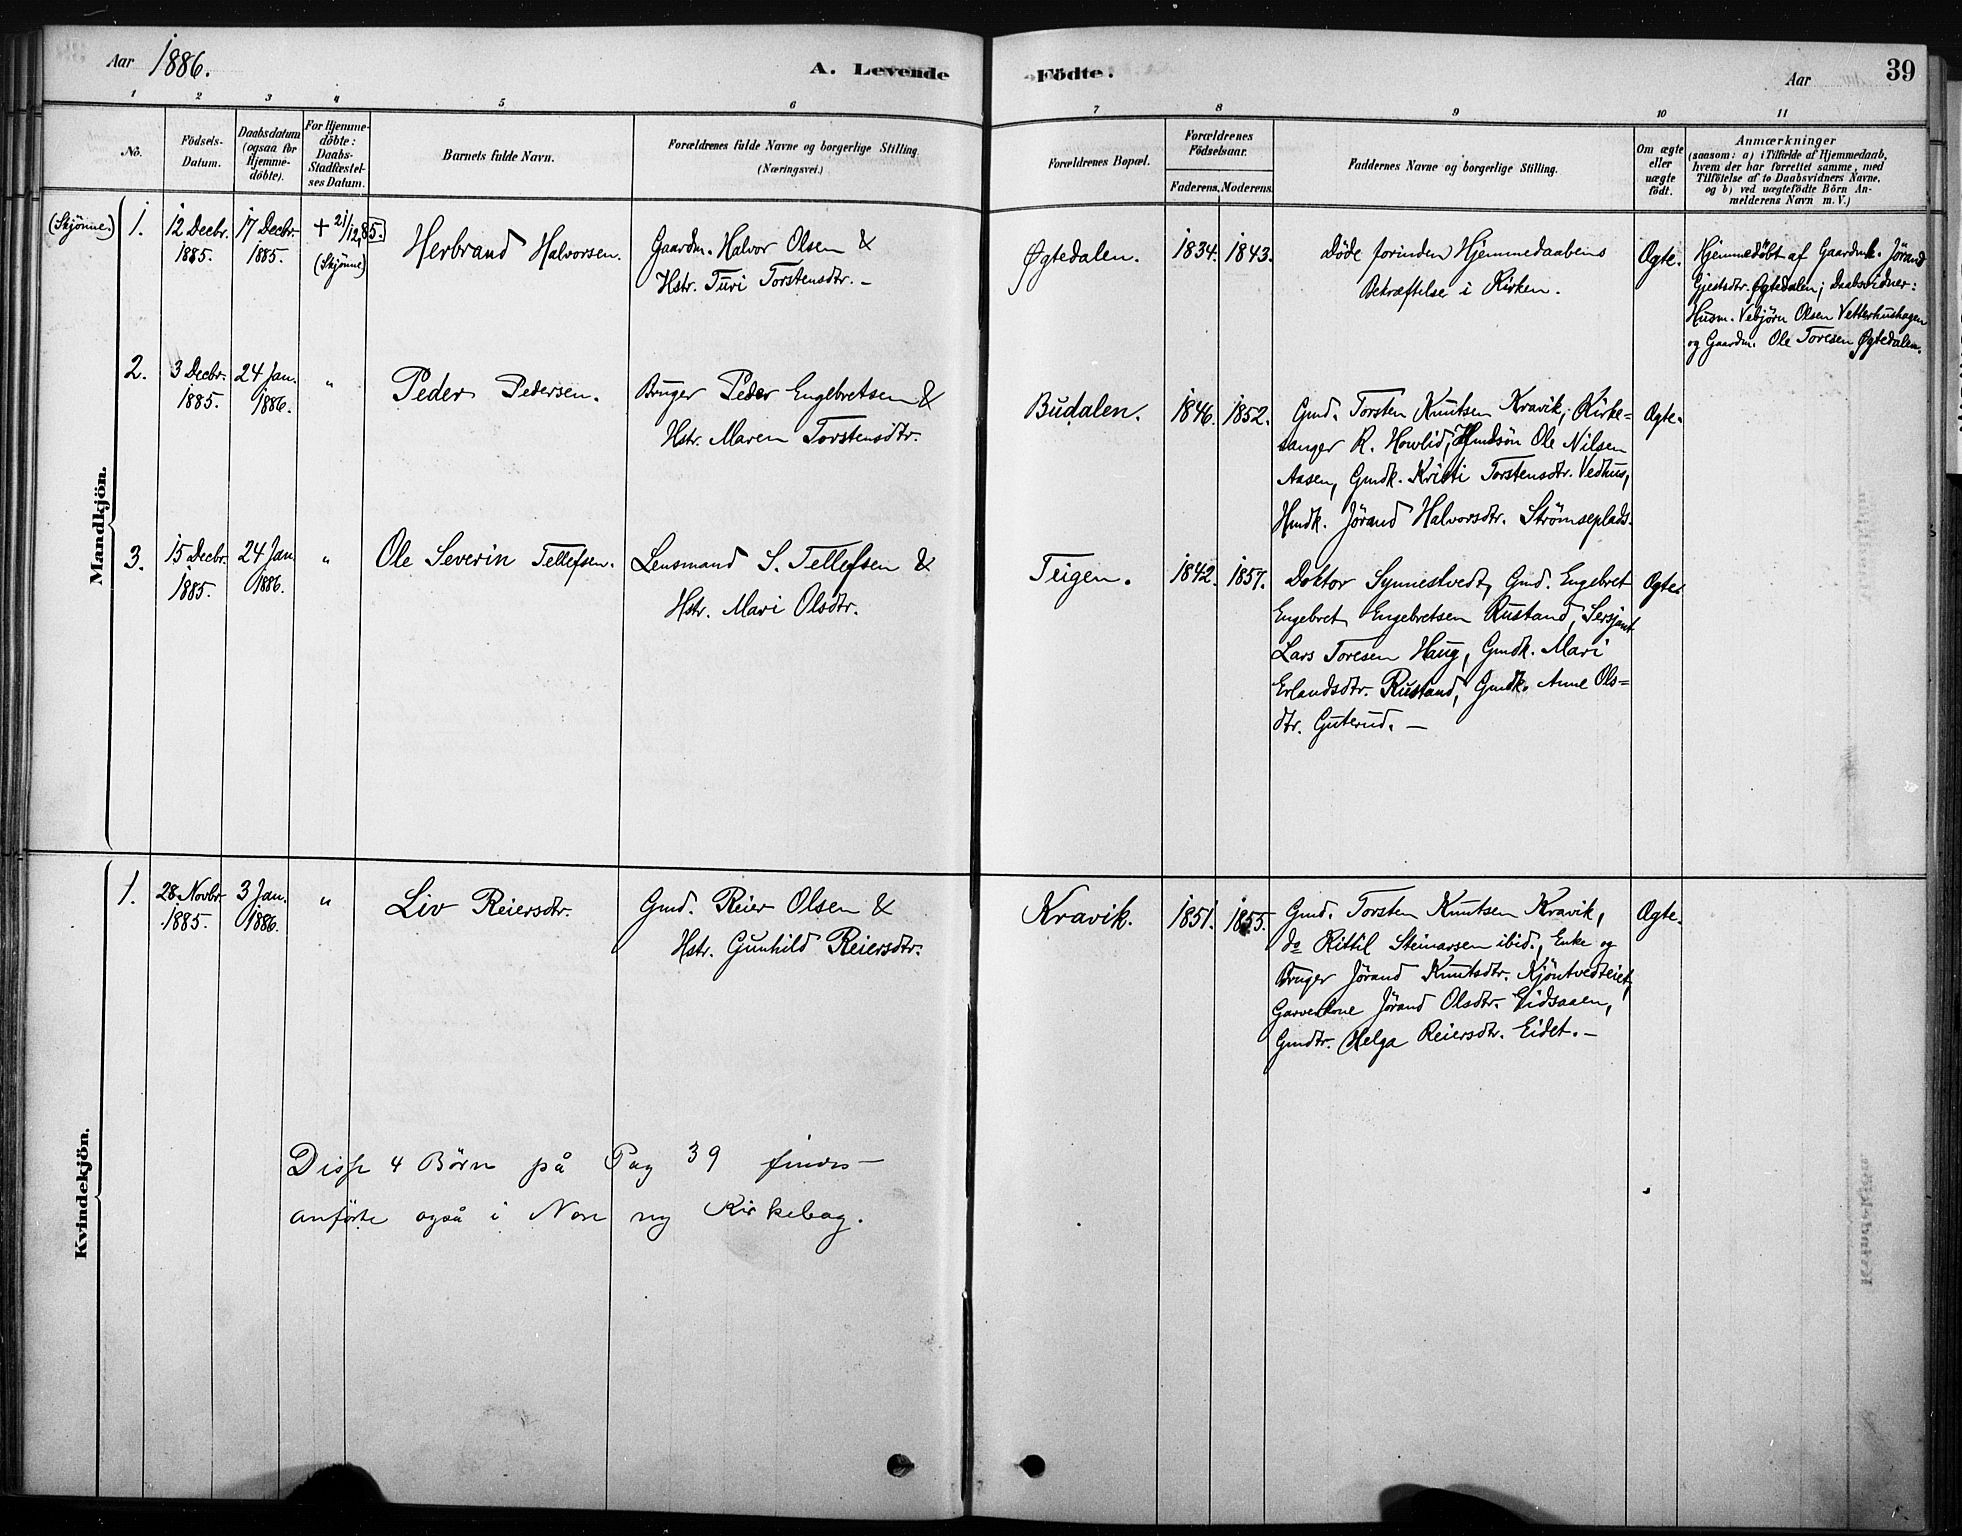 Aar 1886.
A. Levende Födte.
Aar
39
1 2 3 4 5 6 7 8 9 10 11
No.
Födsels-
Datum.
Daabsdatum
(ogsaa for
Hjemme-
döbte).
For Hjemme-
döbte:
Daabs-
Stadfæstel-
ses Datum.
Barnets fulde Navn.
Forældrenes fulde Navne og borgerlige Stilling
(Næringsvei.)
Forældrenes Bopæl.
Forældrenes
Födselsaar.
Faderens. Moderens.
Faddernes Navne og borgerlige Stilling.
Om ægte
eller
uægte
født.
Anmærkninger
(saasom: a) i Tilfælde af Hjemmedaab,
hvem der har forrettet samme, med
Tilföielse af to Daabsvidners Navne,
og b) ved uægtefödte Börn An-
melderens Navn m. V.)
Mandkjön.
(Skjönne.)
1.
12 Decbr.
1885.
17 Decbr.
1885.
+ 21/12 85.
(Skjønne)
Herbrand Halvorsen.
Gaardm. Halvor Olsen &
Hstr. Turi Torstensdtr. –
Øgtedalen.
1834. 1843.
Døde forinden Hjemmedaabens
Bekræftelse i Kirken.
Ægte.
Hjemmedöbt af Gaardmk. Jörand
Gjestsdtr. Øgtedalen; Daabsvidner:
Husm. Vebjörn Olsen Vetterhushagen
og Gaardm. Ole Toresen Øgtedalen.
2.
3 Decbr.
1885.
24 Jan.
1886.
"
Peder Pedersen.
Bruger Peder Engebretsen &
Hstr. Maren Torstensdtr.
Budalen.
1846. 1852.
Gmd. Torsten Knutsen Kravik, Kirke=
sanger R. Howlid, Hmdsön Ole Nilsen
Aasen, Gmdk. Kristi Torstensdtr. Vedhus,
Hmdk. Jørand Halvorsdtr. Strømseplads.
Ægte.
3.
15 Decbr.
1885.
24 Jan.
1886.
"
Ole Severin Tellefsen.
Lensmand S. Tellefsen &
Hstr. Mari Olsdtr.
Teigen.
1842. 1857.
Doktor Synnestvedt, Gmd. Engebret
Engebret Engebretsen Rustand, Sersjant
Lars Toresen Haug, Gmdk. Mari
Erlandsdtr. Rustand, Gmdk. Anne Ols=
dtr. Guterud. –
Ægte.
Kvindekjön.
1.
28 Novbr.
1885.
3 Jan.
1886.
"
Liv Reiersdtr.
Gmd. Reier Olsen &
Hstr. Gunhild Reiersdtr.
Kravik.
1851. 1855.
Gmd. Torsten Knutsen Kravik,
do Kittil Steinarsen ibid., Enke og
Bruger Jørand Knutsdtr. Kjöntvedteiet,
Garverkone Jørand Olsdtr. Eidsaaen,
Gmdtr. Helga Reiersdtr. Eidet. –
Ægte.
Disse 4 Børn på Pag 39 findes
anførte også i Nore ny Kirkebog.